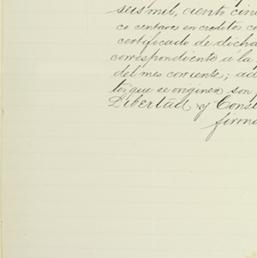 seis mil, ciento cin
co centavos en creditos co
certificado de dicha
correspondiente a la
del mes corriente; ad
tos que se originen son
Libertad y Const
firma